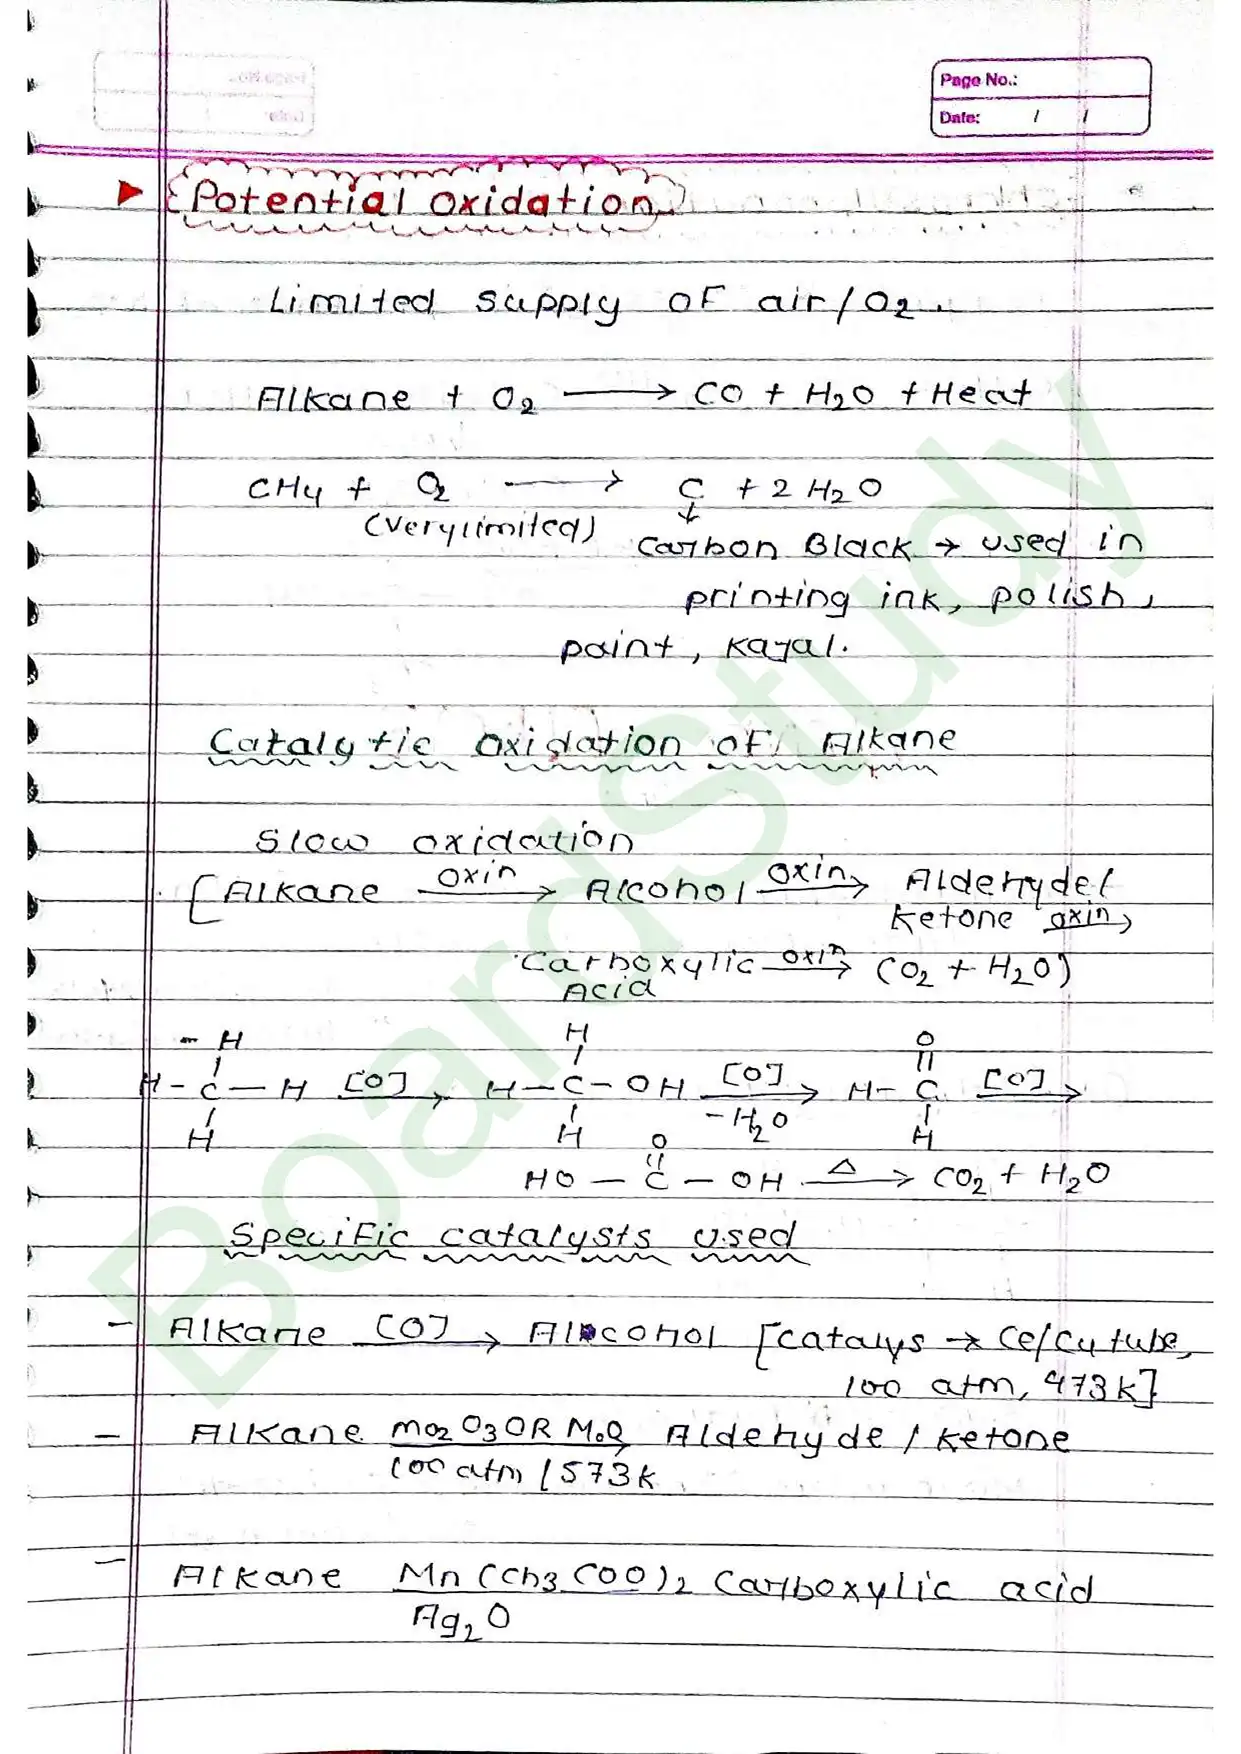 Page No.:
Date: / /
Potential oxidation
Limited supply of air/O2.
Alkane + O2 ⟶ CO + H2O + Heat
CH4 + O2 ⟶ C + 2H2O
(very limited) ↓
Carbon Black → used in
printing ink, polish,
paint, kajal.
Catalytic oxidation of Alkane
Slow oxidation
[Alkane oxin→ Alcohol oxin→ Aldehyde/
Ketone oxin→
Carboxylic oxin→ (CO2 + H2O)
Acid
- H H O
H - C - H [O]→ H - C - OH [O]→ H - C [O]→
-H2O
H H H
O
HO - C - OH Δ→ CO2 + H2O
Specific catalysts used
- Alkane [O]→ Alcohol [catalys → Ce/Cu tube,
100 atm, 473k]
- Alkane mo2O3 OR MoO→ Aldehyde / ketone
100 atm / 573k
- Alkane Mn(Ch3COO)2 Carboxylic acid
Ag2O
BoardStudy